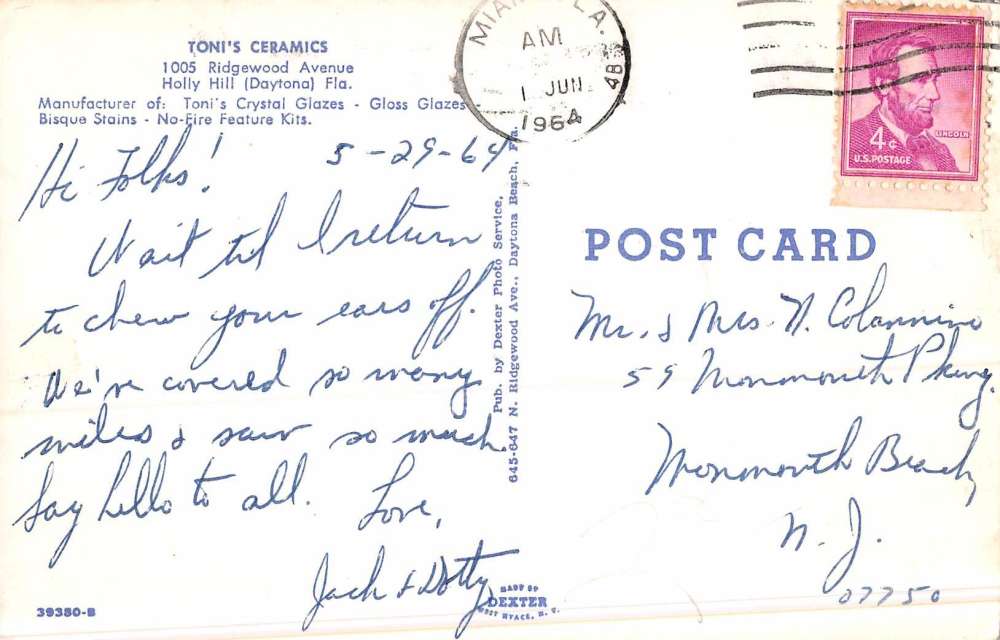 TONI'S CERAMICS
1005 Ridgewood Avenue
Holly Hill (Daytona) Fla.
Manufacturer of: Toni's Crystal Glazes - Gloss Glazes
Bisque Stains - No-Fire Feature Kits.
MIAMI, FLA.
AM
1 JUN
1964
4¢
LINCOLN
U.S. POSTAGE
5-29-64
Hi Folks!
Wait til I return
to chew your ears off.
We've covered so many
miles & saw so much.
Say hello to all.
Love,
Jack & Dotty
Pub. by Dexter Photo Service,
645-647 N. Ridgewood Ave., Daytona Beach, Fla.
POST CARD
Mr. & Mrs. N. Colannino
59 Monmouth Pkwy.
Monmouth Beach,
N. J.
07750
39380-B
MADE BY
DEXTER
WEST NYACK, N. Y.